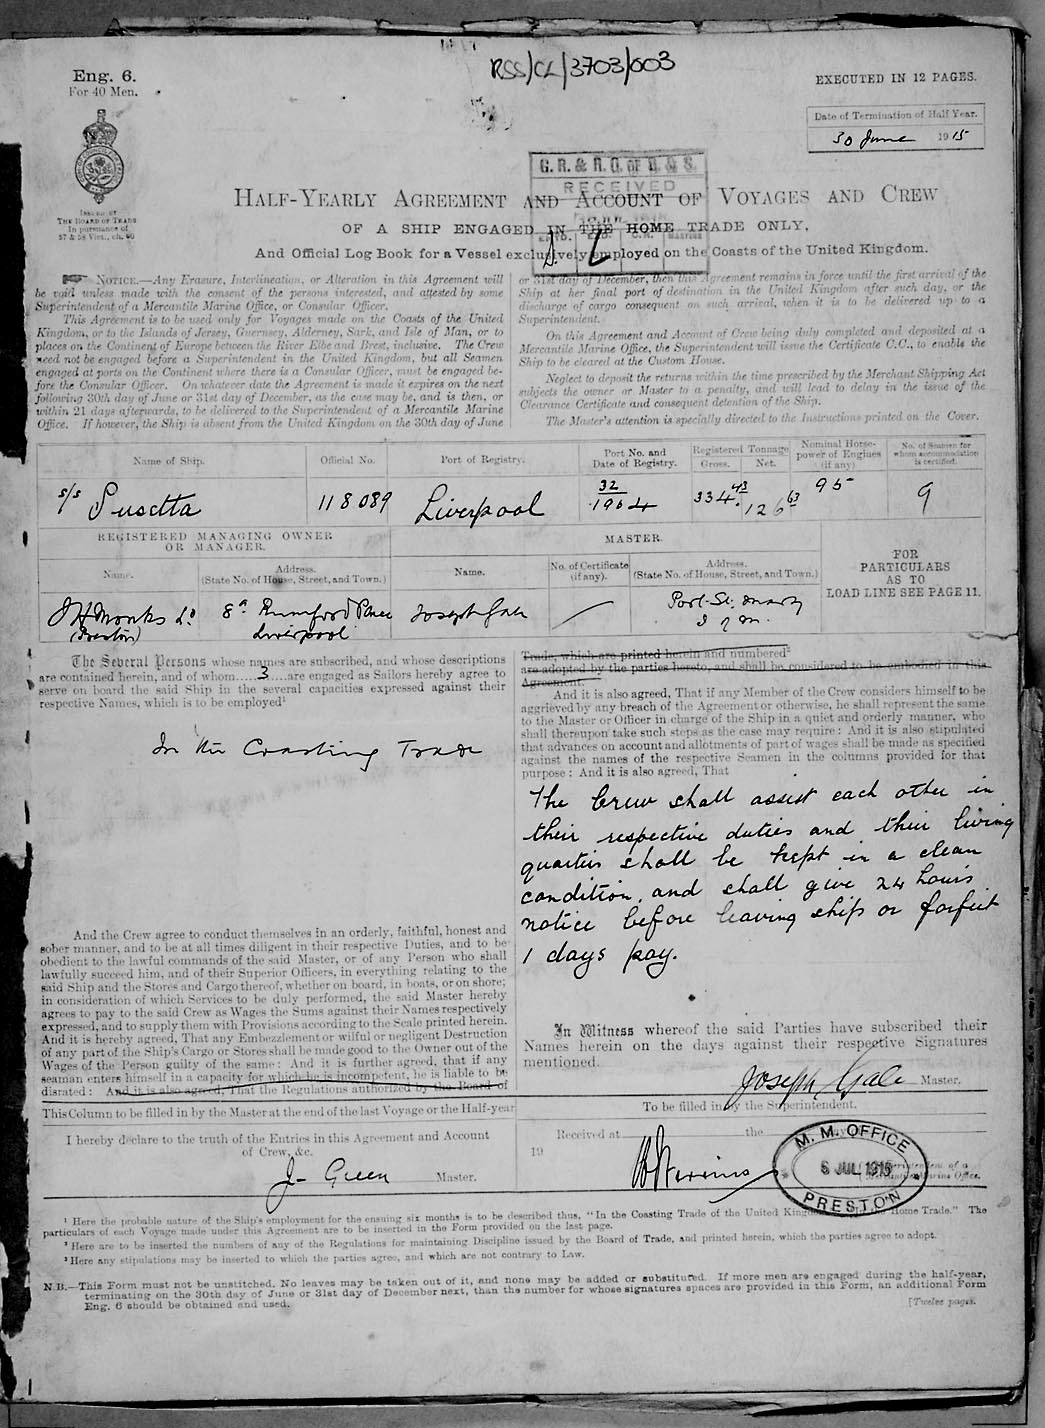 RSS/CL/3703/003
Eng. 6.
For 40 Men.
EXECUTED IN 12 PAGES.
Date of Termination of Half Year.
30 June 1915
ISSUED BY
THE BOARD OF TRADE
In pursuance of
57 & 58 Vict., ch. 60
G.R. & R.O. OF D & S.
RECEIVED
HALF-YEARLY AGREEMENT AND ACCOUNT OF VOYAGES AND CREW
OF A SHIP ENGAGED IN THE HOME TRADE ONLY,
And Official Log Book for a Vessel exclusively employed on the Coasts of the United Kingdom.
NOTICE.—Any Erasure, Interlineation, or Alteration in this Agreement will
be void unless made with the consent of the persons interested, and attested by some
Superintendent of a Mercantile Marine Office, or Consular Officer.
This Agreement is to be used only for Voyages made on the Coasts of the United
Kingdom, or to the Islands of Jersey, Guernsey, Alderney, Sark, and Isle of Man, or to
places on the Continent of Europe between the River Elbe and Brest, inclusive. The Crew
need not be engaged before a Superintendent in the United Kingdom, but all Seamen
engaged at ports on the Continent where there is a Consular Officer, must be engaged be-
fore the Consular Officer. On whatever date the Agreement is made it expires on the next
following 30th day of June or 31st day of December, as the case may be, and is then, or
within 21 days afterwards, to be delivered to the Superintendent of a Mercantile Marine
Office. If however, the Ship is absent from the United Kingdom on the 30th day of June
or 31st day of December, then this Agreement remains in force until the first arrival of the
Ship at her final port of destination in the United Kingdom after such day, or the
discharge of cargo consequent on such arrival, when it is to be delivered up to a
Superintendent.
On this Agreement and Account of Crew being duly completed and deposited at a
Mercantile Marine Office, the Superintendent will issue the Certificate C.C., to enable the
Ship to be cleared at the Custom House.
Neglect to deposit the returns within the time prescribed by the Merchant Shipping Act
subjects the owner or Master to a penalty, and will lead to delay in the issue of the
Clearance Certificate and consequent detention of the Ship.
The Master's attention is specially directed to the Instructions printed on the Cover.
Name of Ship. Official No. Port of Registry. Port No. and Date of Registry. Registered Tonnage Gross. Net. Nominal Horse-power of Engines (if any) No. of Seamen for whom accommodation is certified.
s/s Susetta 118089 Liverpool 32/1904 334.43 126.63 95 9
REGISTERED MANAGING OWNER OR MANAGER. MASTER.
Name. Address. (State No. of House, Street, and Town.) Name. No. of Certificate (if any). Address. (State No. of House, Street, and Town.)
FOR PARTICULARS AS TO LOAD LINE SEE PAGE 11.
J H Monks Ld (Preston) 8a Rumford Place Liverpool Joseph Gale Port St. Mary I of M.
The Several Persons whose names are subscribed, and whose descriptions
are contained herein, and of whom 3 are engaged as Sailors hereby agree to
serve on board the said Ship in the several capacities expressed against their
respective Names, which is to be employed¹
In the Coasting Trade
And the Crew agree to conduct themselves in an orderly, faithful, honest and
sober manner, and to be at all times diligent in their respective Duties, and to be
obedient to the lawful commands of the said Master, or of any Person who shall
lawfully succeed him, and of their Superior Officers, in everything relating to the
said Ship and the Stores and Cargo thereof, whether on board, in boats, or on shore;
in consideration of which Services to be duly performed, the said Master hereby
agrees to pay to the said Crew as Wages the Sums against their Names respectively
expressed, and to supply them with Provisions according to the Scale printed herein.
And it is hereby agreed, That any Embezzlement or wilful or negligent Destruction
of any part of the Ship's Cargo or Stores shall be made good to the Owner out of the
Wages of the Person guilty of the same: And it is further agreed, that if any
seaman enters himself in a capacity for which he is incompetent, he is liable to be
disrated: And it is also agreed, That the Regulations authorized by the Board of
Trade, which are printed herein and numbered²
are adopted by the parties hereto, and shall be considered to be embodied in this
Agreement.
And it is also agreed, That if any Member of the Crew considers himself to be
aggrieved by any breach of the Agreement or otherwise, he shall represent the same
to the Master or Officer in charge of the Ship in a quiet and orderly manner, who
shall thereupon take such steps as the case may require: And it is also stipulated
that advances on account and allotments of part of wages shall be made as specified
against the names of the respective Seamen in the columns provided for that
purpose: And it is also agreed, That
The Crew shall assist each other in
their respective duties and their living
quarters shall be kept in a clean
condition. and shall give 24 hours
notice before leaving ship or forfeit
1 days pay.
In Witness whereof the said Parties have subscribed their
Names herein on the days against their respective Signatures
mentioned.
Joseph Gale Master.
This Column to be filled in by the Master at the end of the last Voyage or the Half-year
To be filled in by the Superintendent.
I hereby declare to the truth of the Entries in this Agreement and Account
of Crew, &c.
J Green Master.
Received at the
19
M. M. OFFICE
6 JUL 1915
PRESTON
¹ Here the probable nature of the Ship's employment for the ensuing six months is to be described thus, "In the Coasting Trade of the United Kingdom Home Trade." The
particulars of each Voyage made under this Agreement are to be inserted in the Form provided on the last page.
² Here are to be inserted the numbers of any of the Regulations for maintaining Discipline issued by the Board of Trade, and printed herein, which the parties agree to adopt.
³ Here any stipulations may be inserted to which the parties agree, and which are not contrary to Law.
N.B.—This Form must not be unstitched. No leaves may be taken out of it, and none may be added or substituted. If more men are engaged during the half-year,
terminating on the 30th day of June or 31st day of December next, than the number for whose signatures spaces are provided in this Form, an additional Form
Eng. 6 should be obtained and used.
[Twelve pages.